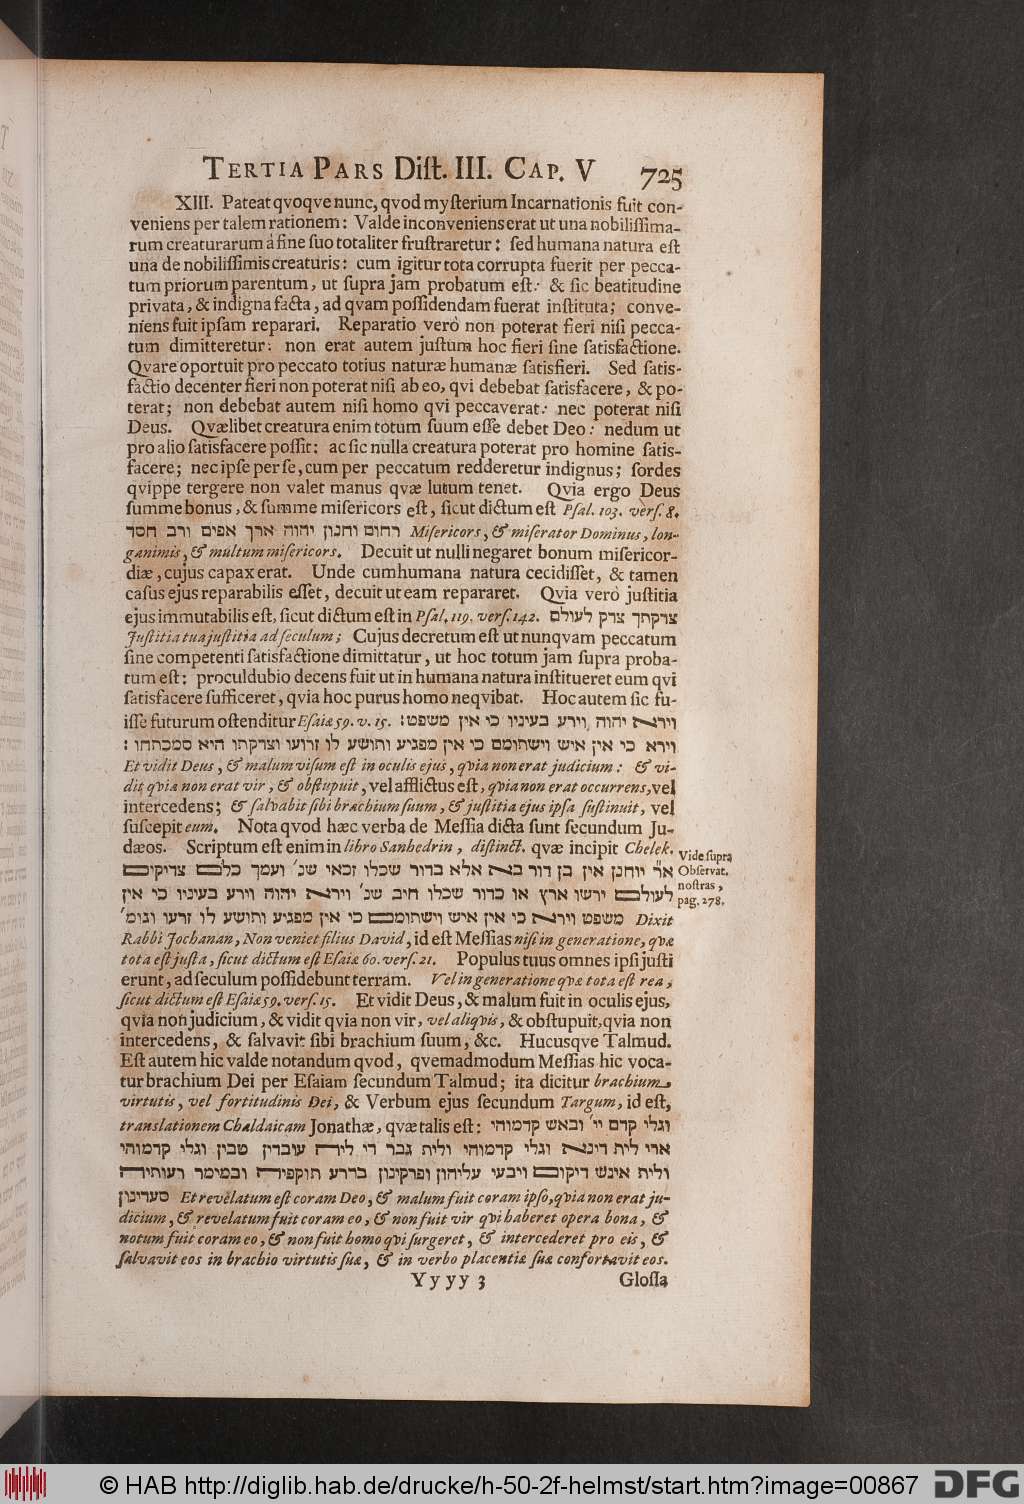 TERTIA PARS Diſt. III. CAP. V 725
XIII. Pateat qvoqve nunc, qvod myſterium Incarnationis fuit con-
veniens per talem rationem: Valde inconveniens erat ut una nobiliſſima-
rum creaturarum â fine ſuo totaliter fruſtraretur: ſed humana natura eſt
una de nobiliſſimis creaturis: cum igitur tota corrupta fuerit per pecca-
tum priorum parentum, ut ſupra jam probatum eſt: & ſic beatitudine
privata, & indigna facta, ad qvam poſſidendam fuerat inſtituta; conve-
niens fuit ipſam reparari. Reparatio verò non poterat fieri niſi pecca-
tum dimitteretur: non erat autem juſtum hoc fieri ſine ſatisfactione.
Qvare oportuit pro peccato totius naturæ humanæ ſatisfieri. Sed ſatis-
factio decenter fieri non poterat niſi ab eo, qvi debebat ſatisfacere, & po-
terat; non debebat autem niſi homo qvi peccaverat: nec poterat niſi
Deus. Qvælibet creatura enim totum ſuum eſſe debet Deo: nedum ut
pro alio ſatisfacere poſſit: ac ſic nulla creatura poterat pro homine ſatis-
facere; nec ipſe per ſe, cum per peccatum redderetur indignus; ſordes
qvippe tergere non valet manus qvæ lutum tenet. Qvia ergo Deus
ſumme bonus, & ſumme miſericors eſt, ſicut dictum eſt Pſal. 103. verſ. 8.
רחום וחנון יהוה ארך אפים ורב חסד Miſericors, & miſerator Dominus, lon-
ganimis, & multum miſericors. Decuit ut nulli negaret bonum miſericor-
diæ, cujus capax erat. Unde cum humana natura cecidiſſet, & tamen
caſus ejus reparabilis eſſet, decuit ut eam repararet. Qvia verò juſtitia
ejus immutabilis eſt, ſicut dictum eſt in Pſal. 119. verſ. 142. צדקתך צדק לעולם
Juſtitia tua juſtitia ad ſeculum; Cujus decretum eſt ut nunqvam peccatum
ſine competenti ſatisfactione dimittatur, ut hoc totum jam ſupra proba-
tum eſt: proculdubio decens fuit ut in humana natura inſtitueret eum qvi
ſatisfacere ſufficeret, qvia hoc purus homo neqvibat. Hoc autem ſic fu-
iſſe futurum oſtenditur Eſaiæ 59. v. 15. וירא יהוה וירע בעיניו כי אין משפט:
וירא כי אין איש וישתומם כי אין מפגיע ותושע לו זרועו וצדקתו היא סמכתהו:
Et vidit Deus, & malum viſum eſt in oculis ejus, qvia non erat judicium: & vi-
dit qvia non erat vir, & obſtupuit, vel afflictus eſt, qvia non erat occurrens, vel
intercedens; & ſalvabit ſibi brachium ſuum, & juſtitia ejus ipſa ſuſtinuit, vel
ſuſcepit eum. Nota qvod hæc verba de Meſſia dicta ſunt ſecundum Ju-
dæos. Scriptum eſt enim in libro Sanhedrin, diſtinct. qvæ incipit Chelek.
אר״ יוחנן אין בן דוד בא אלא בדור שכלו זכאי שנ׳ ועמך כלם צדיקים
לעולם ירשו ארץ או בדור שכלו חיב שנ׳ וירא יהוה וירע בעיניו כי אין
משפט וירא כי אין איש וישתומם כי אין מפגיע ותושע לו זרעו וגומ׳ Dixit
Vide ſupra
Obſervat.
noſtras,
pag. 278.
Rabbi Jochanan, Non veniet filius David, id eſt Meſſias niſi in generatione, qvæ
tota eſt juſta, ſicut dictum eſt Eſaiæ 60. verſ. 21. Populus tuus omnes ipſi juſti
erunt, ad ſeculum poſſidebunt terram. Vel in generatione qvæ tota eſt rea,
ſicut dictum eſt Eſaiæ 59. verſ. 15. Et vidit Deus, & malum fuit in oculis ejus,
qvia non judicium, & vidit qvia non vir, vel aliqvis, & obſtupuit, qvia non
intercedens, & ſalvavit ſibi brachium ſuum, &c. Hucusqve Talmud.
Eſt autem hic valde notandum qvod, qvemadmodum Meſſias hic voca-
tur brachium Dei per Eſaiam ſecundum Talmud; ita dicitur brachium
virtutis, vel fortitudinis Dei, & Verbum ejus ſecundum Targum, id eſt,
translationem Chaldaicam Jonathæ, qvæ talis eſt: וגלי קדם יי׳ ובאש קדמוהי
ארי לית דינא וגלי קדמוהי ולית גבר די ליה עובדין טבין וגלי קדמוהי
ולית אינש דיקום ויבעי עליהון ופרקינון בדרע תוקפיה ובמימר רעותיה
סעדינון Et revelatum eſt coram Deo, & malum fuit coram ipſo, qvia non erat ju-
dicium, & revelatum fuit coram eo, & non fuit vir qvi haberet opera bona, &
notum fuit coram eo, & non fuit homo qvi ſurgeret, & intercederet pro eis, &
ſalvavit eos in brachio virtutis ſuæ, & in verbo placentiæ ſuæ confortavit eos.
Yyyy 3 Gloſſa
© HAB http://diglib.hab.de/drucke/h-50-2f-helmst/start.htm?image=00867 DFG